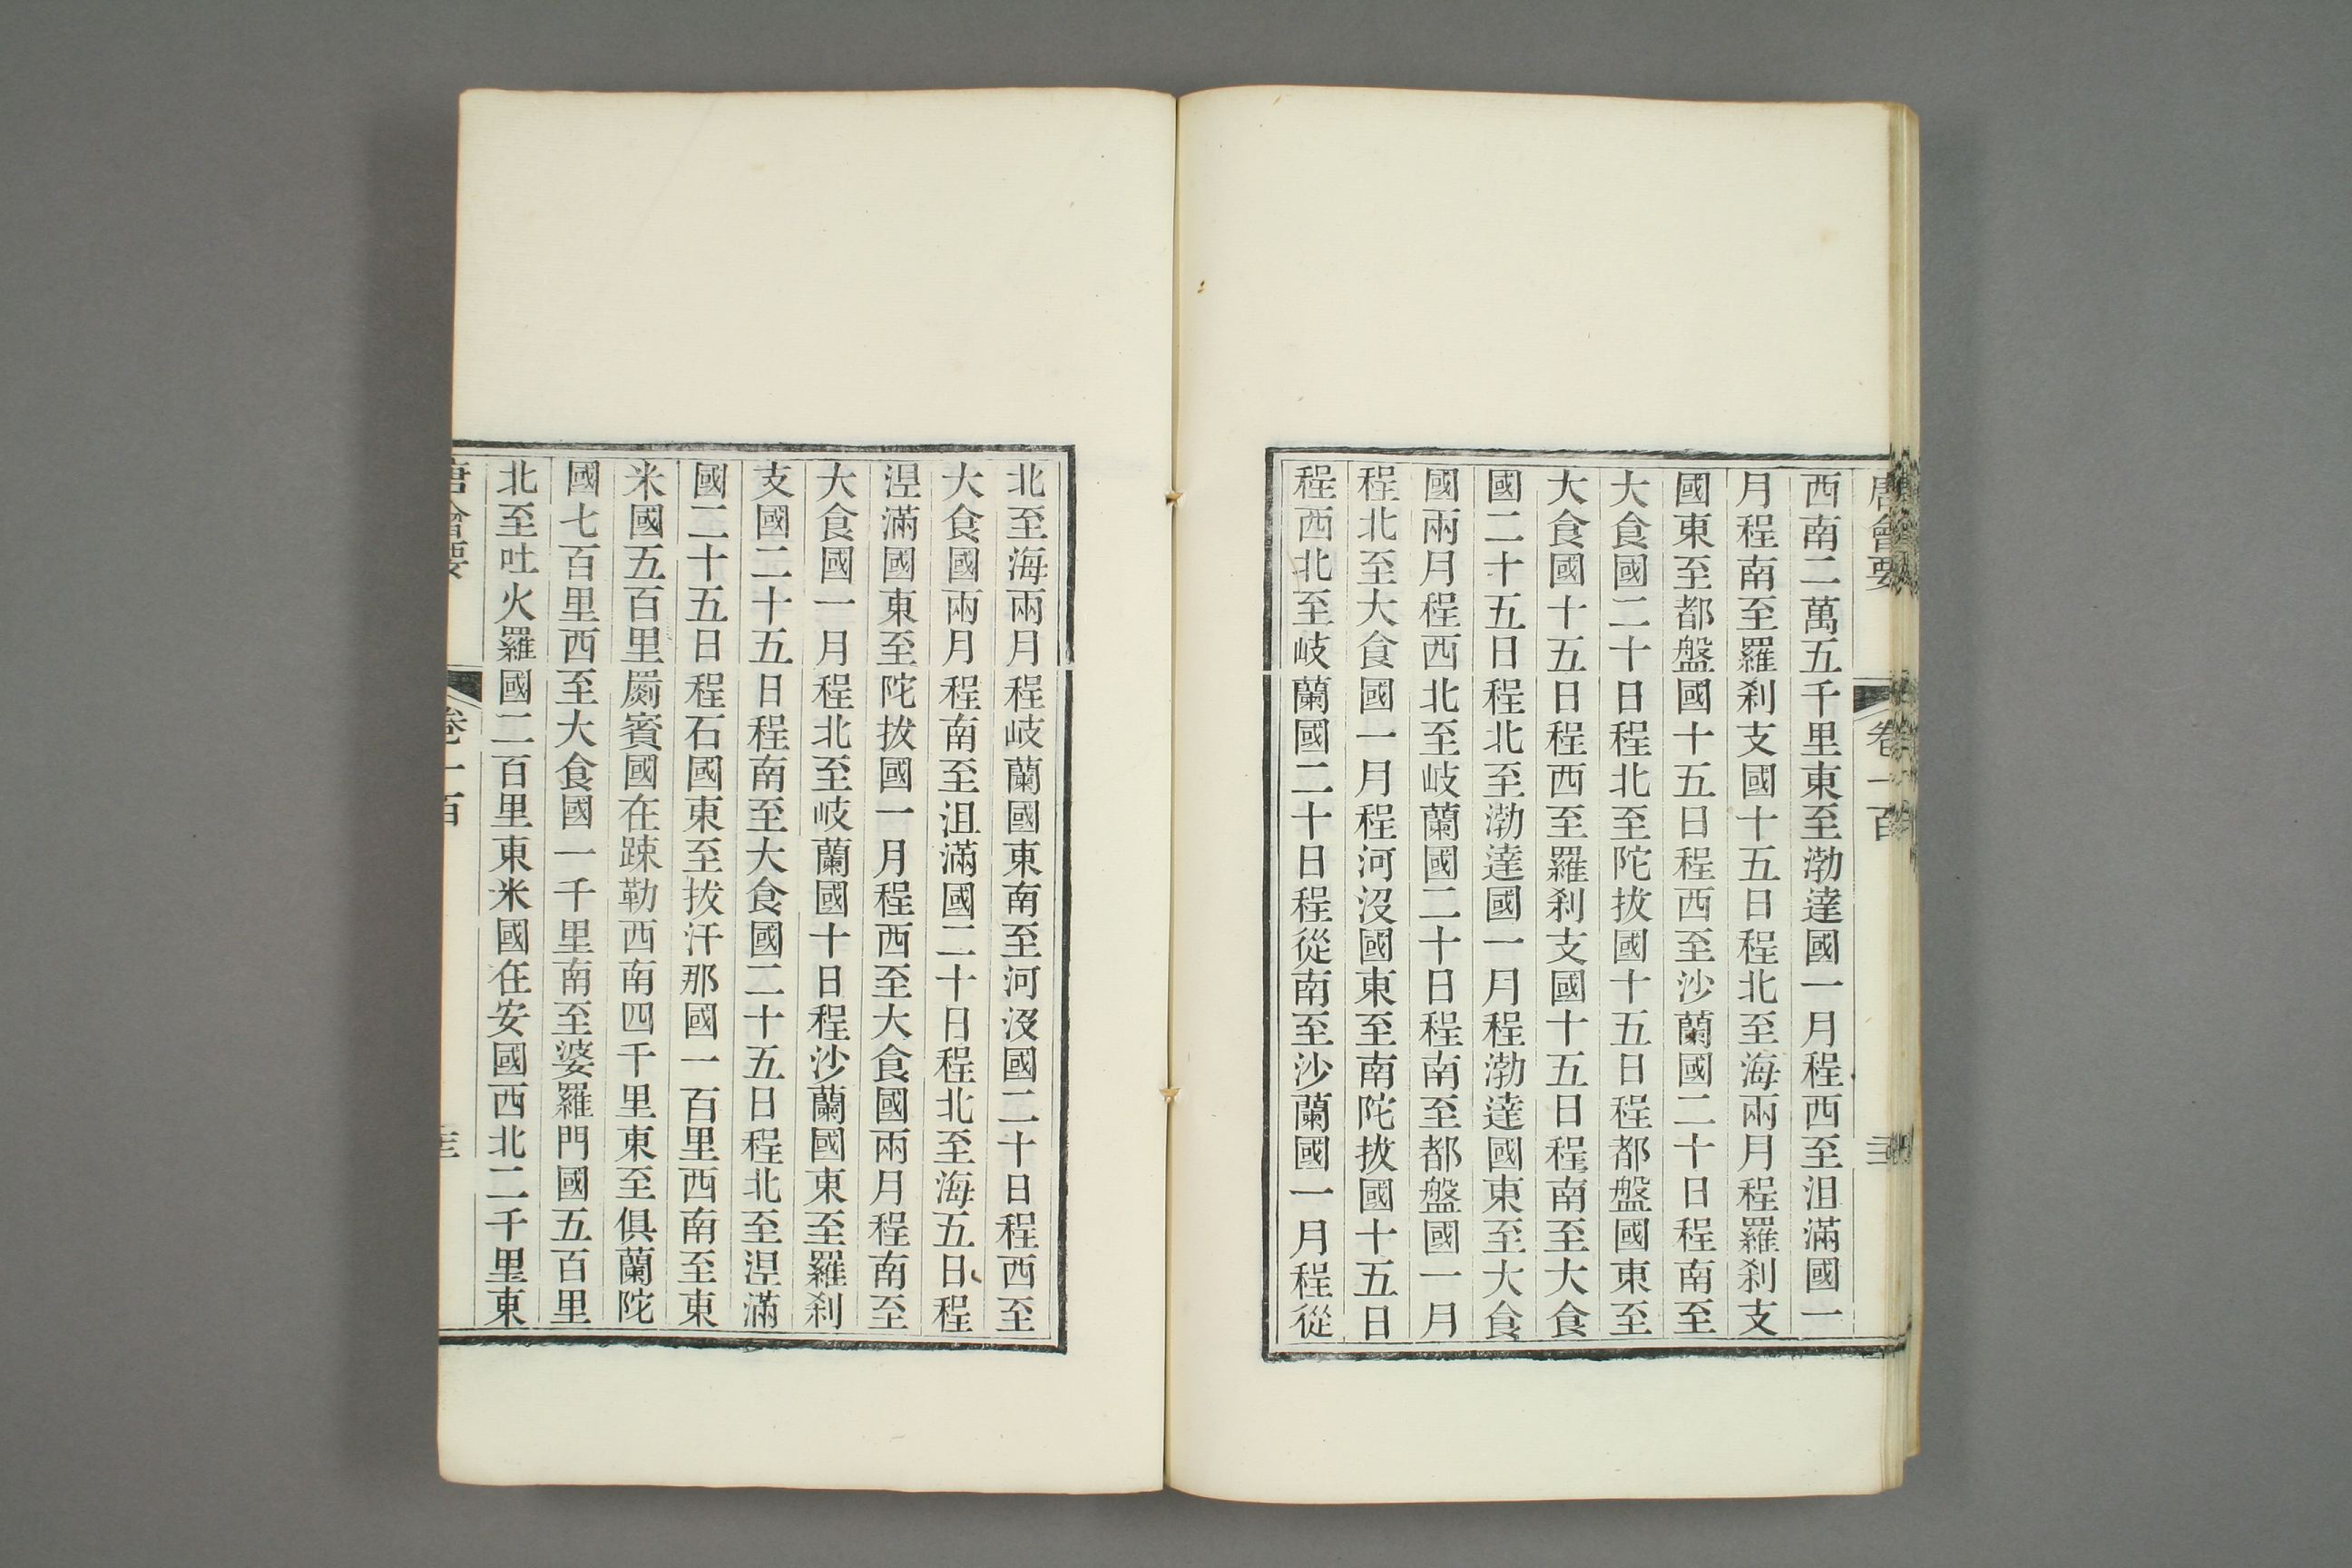 唐會要 卷一百
西南二萬五千里東至渤達國一月程西至沮滿國一
月程南至羅刹支國十五日程北至海兩月程羅刹支
國東至都盤國十五日程西至沙蘭國二十日程南至
大食國二十日程北至陀拔國十五日程都盤國東至
大食國十五日程西至羅刹支國十五日程南至大食
國二十五日程北至渤達國一月程渤達國東至大食
國兩月程西北至岐蘭國二十日程南至都盤國一月
程北至大食國一月程河沒國東至南陀拔國十五日
程西北至岐蘭國二十日程從南至沙蘭國一月程從
北至海兩月程岐蘭國東南至河沒國二十日程西至
大食國兩月程南至沮滿國二十日程北至海五日程
涅滿國東至陀拔國一月程西至大食國兩月程南至
大食國一月程北至岐蘭國十日程沙蘭國東至羅刹
支國二十五日程南至大食國二十五日程北至涅滿
國二十五日程石國東至拔汗那國一百里西南至東
米國五百里罽賓國在踈勒西南四千里東至俱蘭陀
國七百里西至大食國一千里南至婆羅門國五百里
北至吐火羅國二百里東米國在安國西北二千里東
唐會要 卷一百